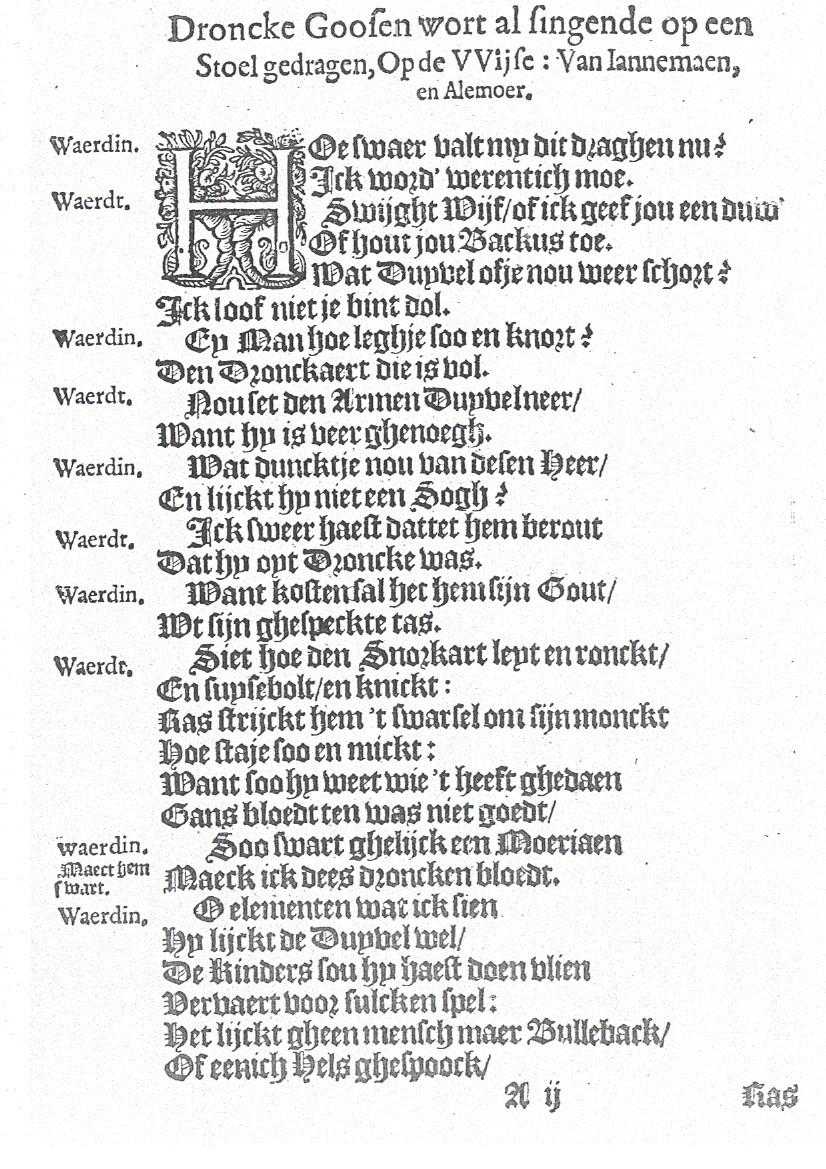 Droncke Gooſen wort al ſingende op een
Stoel gedragen, Op de VVijſe: Van Iannemaen,
en Alemoer.
Waerdin. HOe ſwaer valt my dit draghen nu?
Ick word' werentich moe.
Waerdt. Swijght Wijf/ of ick geef jou een duw'
Of hout jou Backus toe.
Wat Duyvel ofje nou weer ſchort?
Ick loof niet je bint dol.
Waerdin. Ey Man hoe leghje ſoo en knort?
Den Dronckaert die is vol.
Waerdt. Nou ſet den Armen Duyvel neer/
Want hy is veer ghenoegh.
Waerdin. Wat duncktje nou van deſen Heer/
En lijckt hy niet een Sogh?
Waerdt. Ick ſweer haeſt dattet hem berout
Dat hy oyt Droncke was.
Waerdin. Want koſten ſal het hem ſijn Gout/
Wt ſijn gheſpeckte tas.
Waerdt. Siet hoe den Snorkart leyt en ronckt/
En ſuyſebolt/ en knickt:
Ras ſtrijckt hem 't ſwartſel om ſijn monckt
Hoe ſtaje ſoo en mickt:
Want ſoo hy weet wie 't heeft ghedaen
Gans bloedt ten was niet goedt/
Waerdin. Soo ſwart ghelijck een Moeriaen
Maect hem ſwart. Maeck ick dees droncken bloedt.
Waerdin, O elementen wat ick ſien
Hy lijckt de Duyvel wel/
De Kinders ſou hy haeſt doen vlien
Vervaert voor ſulcken ſpel:
Het lijckt gheen menſch maer Bulleback/
Of eenich Hels gheſpoock/
A ij Ras